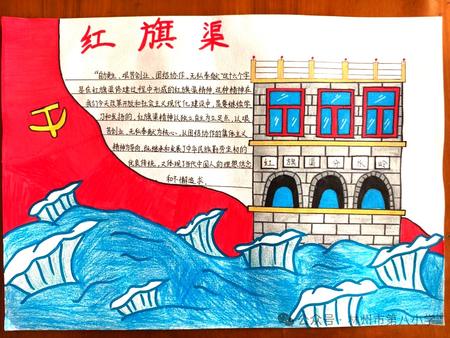 红旗渠
"自力更生、艰苦创业、团结协作、无私奉献"这十六个字
是在红旗渠修建过程中形成的红旗渠精神,这种精神在
我们今天改革开放和社会主义现代化建设中,需要继续学
习和发扬的。红旗渠精神以独立自主为立足点,以艰
苦创业、无私奉献为核心,以团结协作的集体主义
精神为导向,既继承和发展了中华民族勤劳坚韧的
优良传统,又体现了当代中国人的理想信念
和不懈追求。
红旗渠分水岭
公众号·林州市第八小学